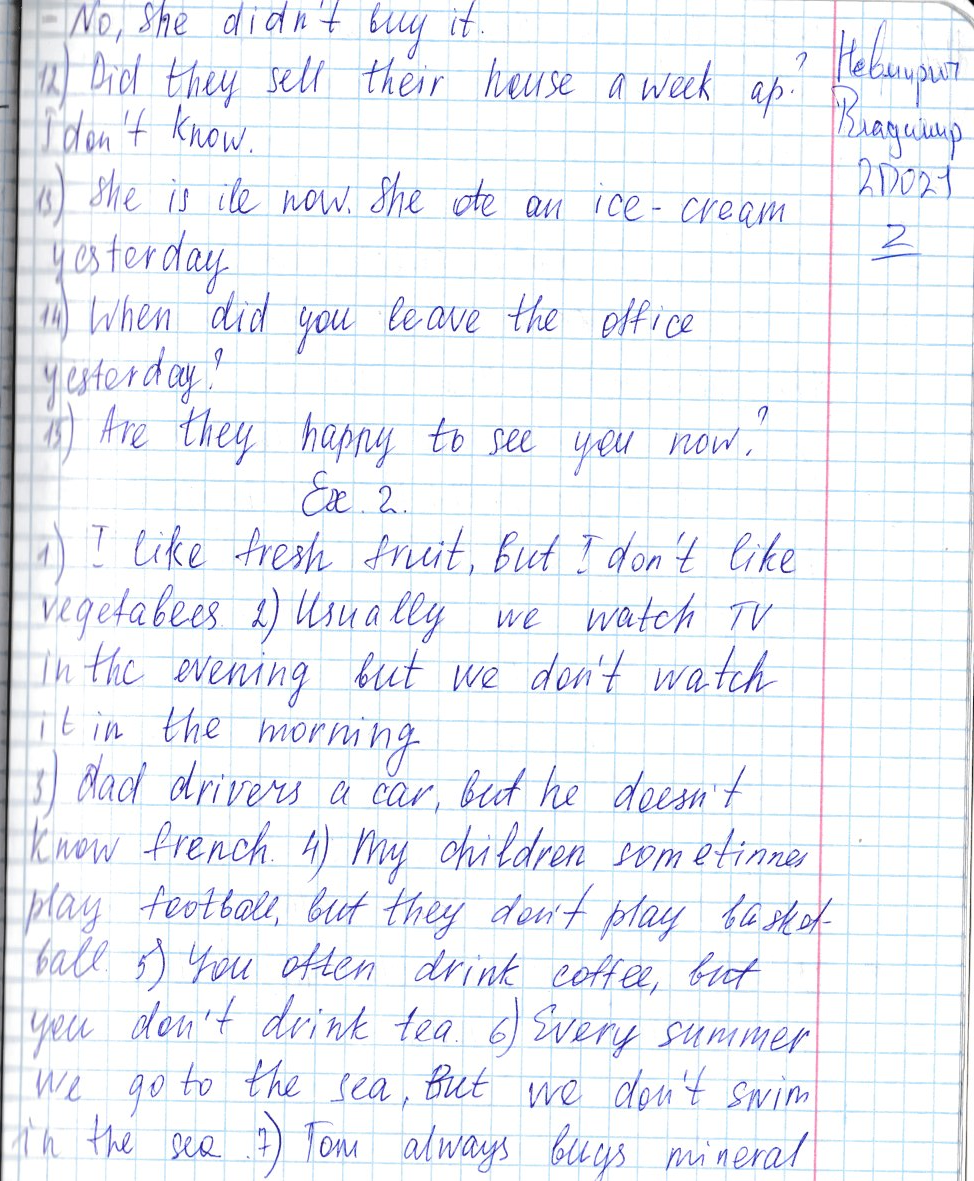 - No, she didn't buy it.
12) Did they sell their house a week ago?
I don't know.
13) She is ile now. She ate an ice-cream
yesterday
14) When did you leave the office
yesterday?
15) Are they happy to see you now?
Ex. 2.
1) I like fresh fruit, but I don't like
vegetabees 2) Usually we watch TV
in the evening but we don't watch
it in the morning
3) dad drivers a car, but he doesn't
know french. 4) My children sometimes
play football, but they don't play basket-
ball. 5) You often drink coffee, but
you don't drink tea. 6) Every summer
we go to the sea, But we don't swim
in the sea. 7) Tom always buys mineral
Владимир
2D021
2